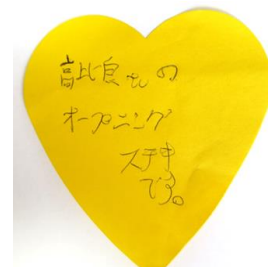 高比良さんの
オープニング
ステキ
です。